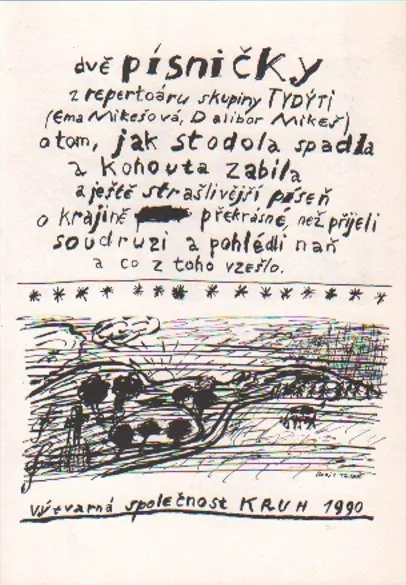 dvě písničky
z repertoáru skupiny TYDÝTI
(Ema Mikešová, Dalibor Mikeš)
o tom, jak stodola spadla
a kohouta zabila
a ještě strašlivější píseň
o krajině překrásné, než přijeli
soudruzi a pohlédli naň
a co z toho vzešlo.
výtvarná společnost KRUH 1990